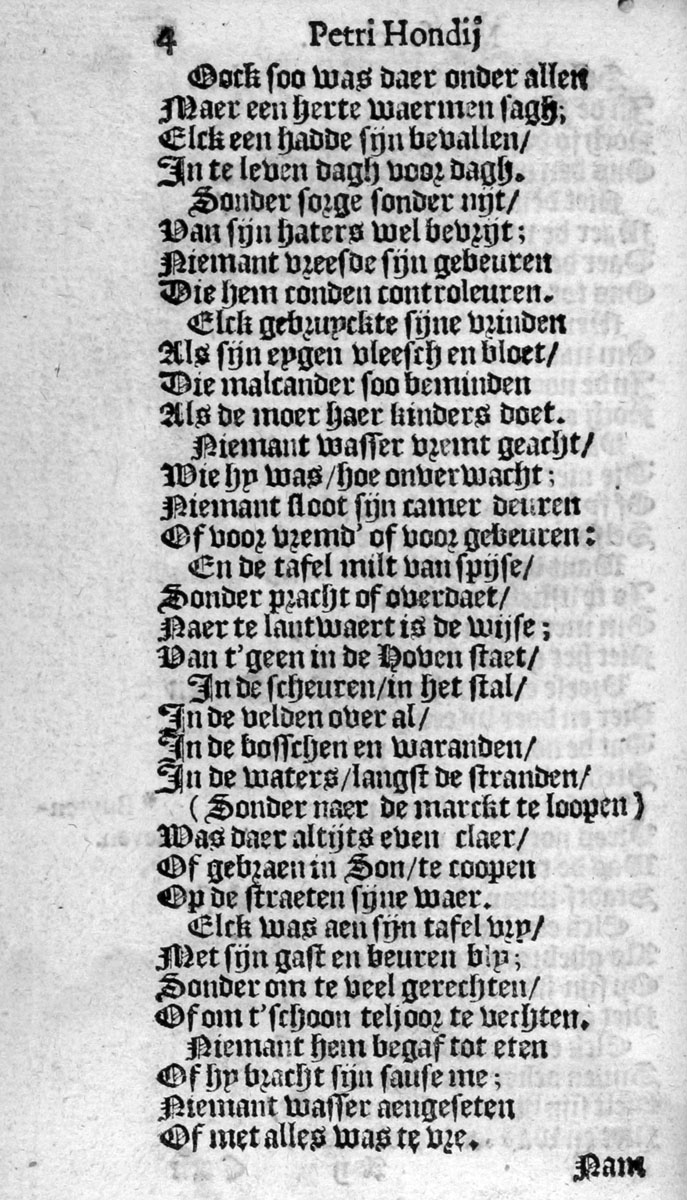 4 Petri Hondij
Oock soo was daer onder allen
Maer een herte waermen sagh;
Elck een hadde sijn bevallen/
In te leven dagh voor dagh.
Sonder sorge sonder nijt/
Van sijn haters wel bevrijt;
Niemant vreesde sijn gebeuren
Die hem conden controleuren.
Elck gebruyckte sijne vrinden
Als sijn eygen vleesch en bloet/
Die malcander soo beminden
Als de moer haer kinders doet.
Niemant wasser vremt geacht/
Wie hy was/hoe onverwacht;
Niemant sloot sijn camer deuren
Of voor vremd' of voor gebeuren:
En de tafel milt van spijse/
Sonder pracht of overdaet/
Naer te lantwaert is de wijse;
Van t'geen in de Hoven staet/
In de scheuren/in het stal/
In de velden over al/
In de bosschen en waranden/
In de waters/langst de stranden/
(Sonder naer de marckt te loopen)
Was daer altijts even claer/
Of gebraen in Son/te coopen
Op de straeten sijne waer.
Elck was aen sijn tafel vry/
Met sijn gast en beuren bly;
Sonder om te veel gerechten/
Of om t'schoon teljoor te vechten.
Niemant hem begaf tot eten
Of hy bracht sijn sause me;
Niemant wasser aengeseten
Of met alles was te vre.
Nam